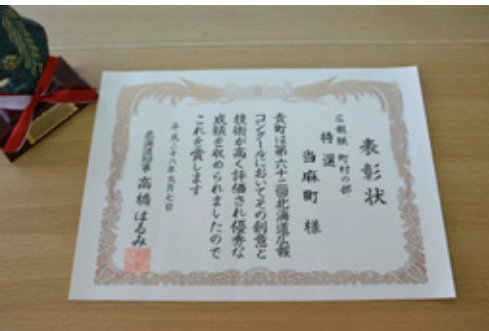 表彰状
広報紙 町村の部
特選
当麻町 様
貴町は第六十二回北海道広報
コンクールにおいてその創意と
技術が高く評価され優秀な
成績を収められましたので
これを賞します
平成二十八年九月七日
北海道知事 高橋はるみ